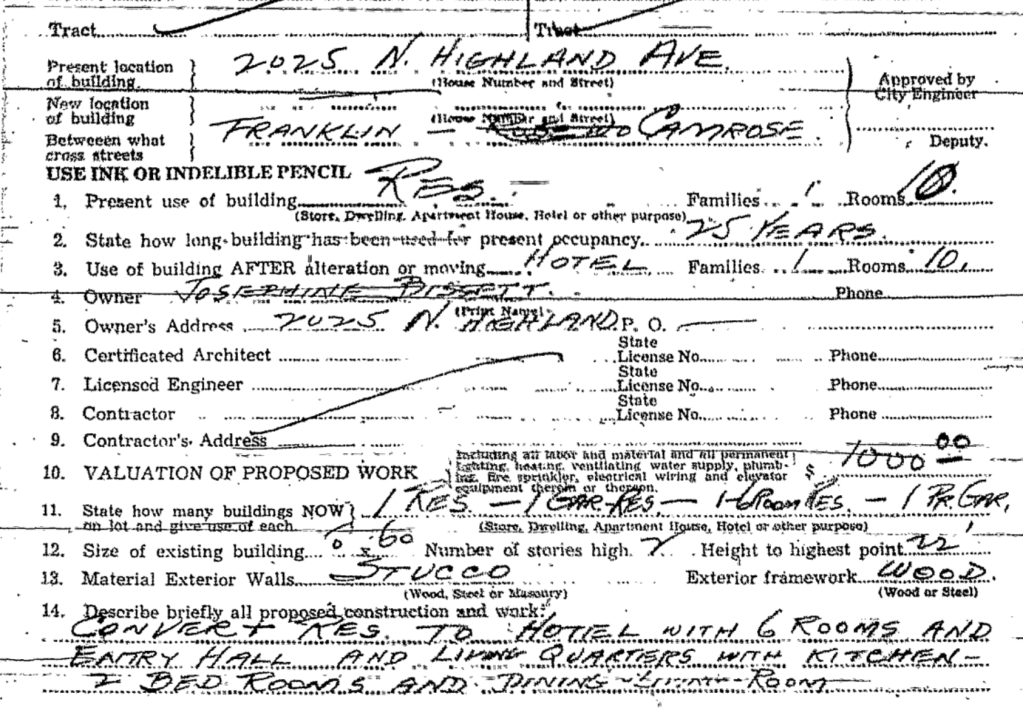 Tract Tract
Present location of building } 2025 N. HIGHLAND AVE.
(House Number and Street)
Approved by City Engineer
New location of building }
(House Number and Street)
Between what cross streets } FRANKLIN — CAMROSE
Deputy.
USE INK OR INDELIBLE PENCIL
1. Present use of building RES. Families 1 Rooms 10.
(Store, Dwelling, Apartment House, Hotel or other purpose)
2. State how long building has been used for present occupancy 25 YEARS.
3. Use of building AFTER alteration or moving HOTEL Families 1 Rooms 10.
4. Owner JOSEPHINE BISSETT. Phone
(Print Name)
5. Owner's Address 2025 N. HIGHLAND P. O.
6. Certificated Architect State License No. Phone
7. Licensed Engineer State License No. Phone
8. Contractor State License No. Phone
9. Contractor's Address
10. VALUATION OF PROPOSED WORK { Including all labor and material and all permanent lighting, heating, ventilating water supply, plumbing, fire sprinkler, electrical wiring and elevator equipment therein or thereon. } $ 1000 00
11. State how many buildings NOW on lot and give use of each } 1 RES. — 1 GAR-RES — 1-6 ROOM RES. — 1 PR. GAR.
(Store, Dwelling, Apartment House, Hotel or other purpose)
12. Size of existing building x 60 Number of stories high 2 Height to highest point 22'
13. Material Exterior Walls STUCCO Exterior framework WOOD.
(Wood, Steel or Masonry) (Wood or Steel)
14. Describe briefly all proposed construction and work:
CONVERT RES. TO HOTEL WITH 6 ROOMS AND
ENTRY HALL AND LIVING QUARTERS WITH KITCHEN —
2 BED ROOMS AND DINING ROOM